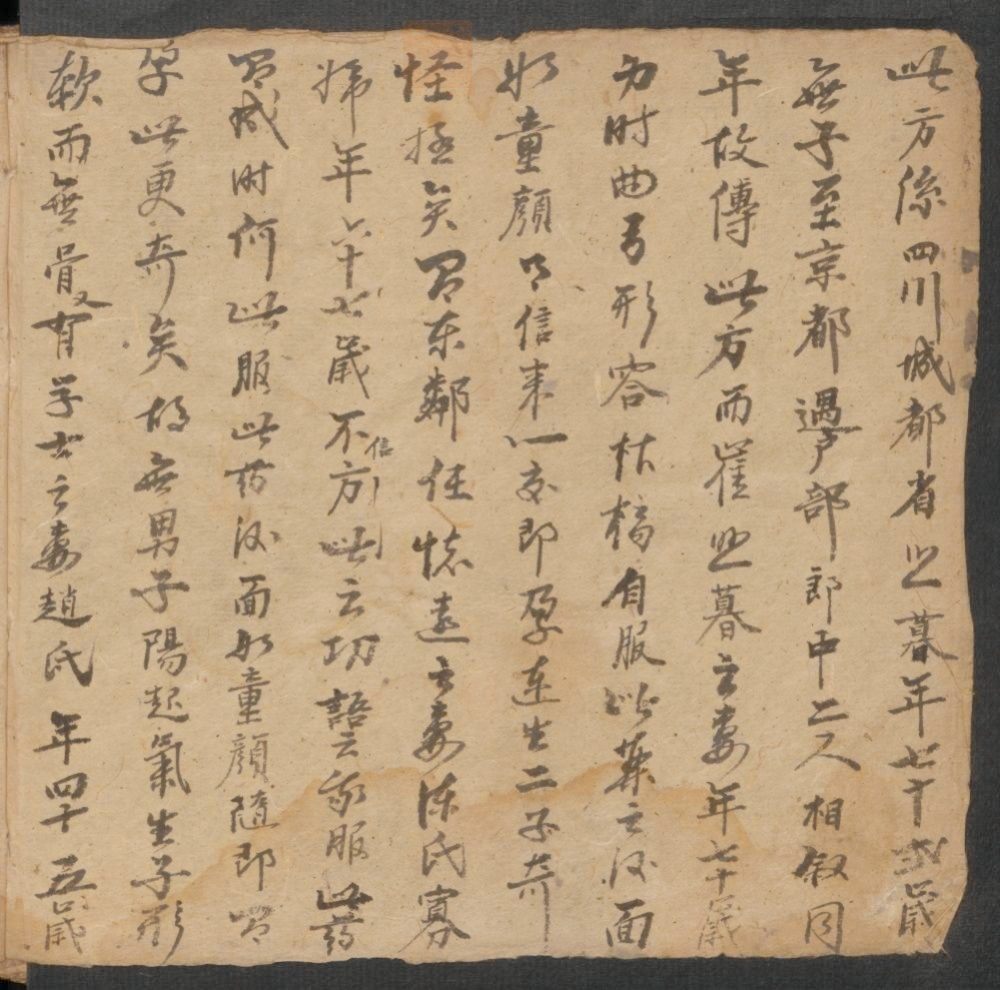 此方係四川城都省㐰暮年七十弍歲
無子至京都遇户部郎中二人相敘同
年故傳此方而崔㐰暮之妻年七十歲
力时曲弓形容枯槁自服此藥之後面
如童顏 信来一交即孕連生二子奇
怪極矣 东鄰任懷遠之妻陈氏寡
婦年六十七歲不信方此云功語云我服此药
 时何 此服此药後面如童顏随即 
孕此更奇矣故無男子陽起氣生子形
軟而無骨又有学士之妻趙氏年四十五歲